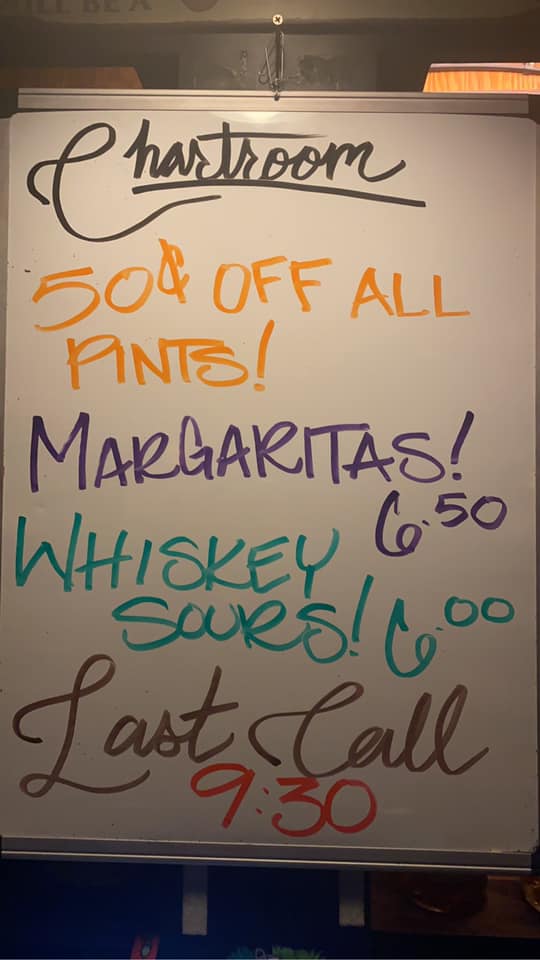 ILL BE A
Chartroom
50¢ OFF ALL
PINTS!
MARGARITAS!
6.50
WHISKEY
SOURS! 6.00
Last Call
9:30